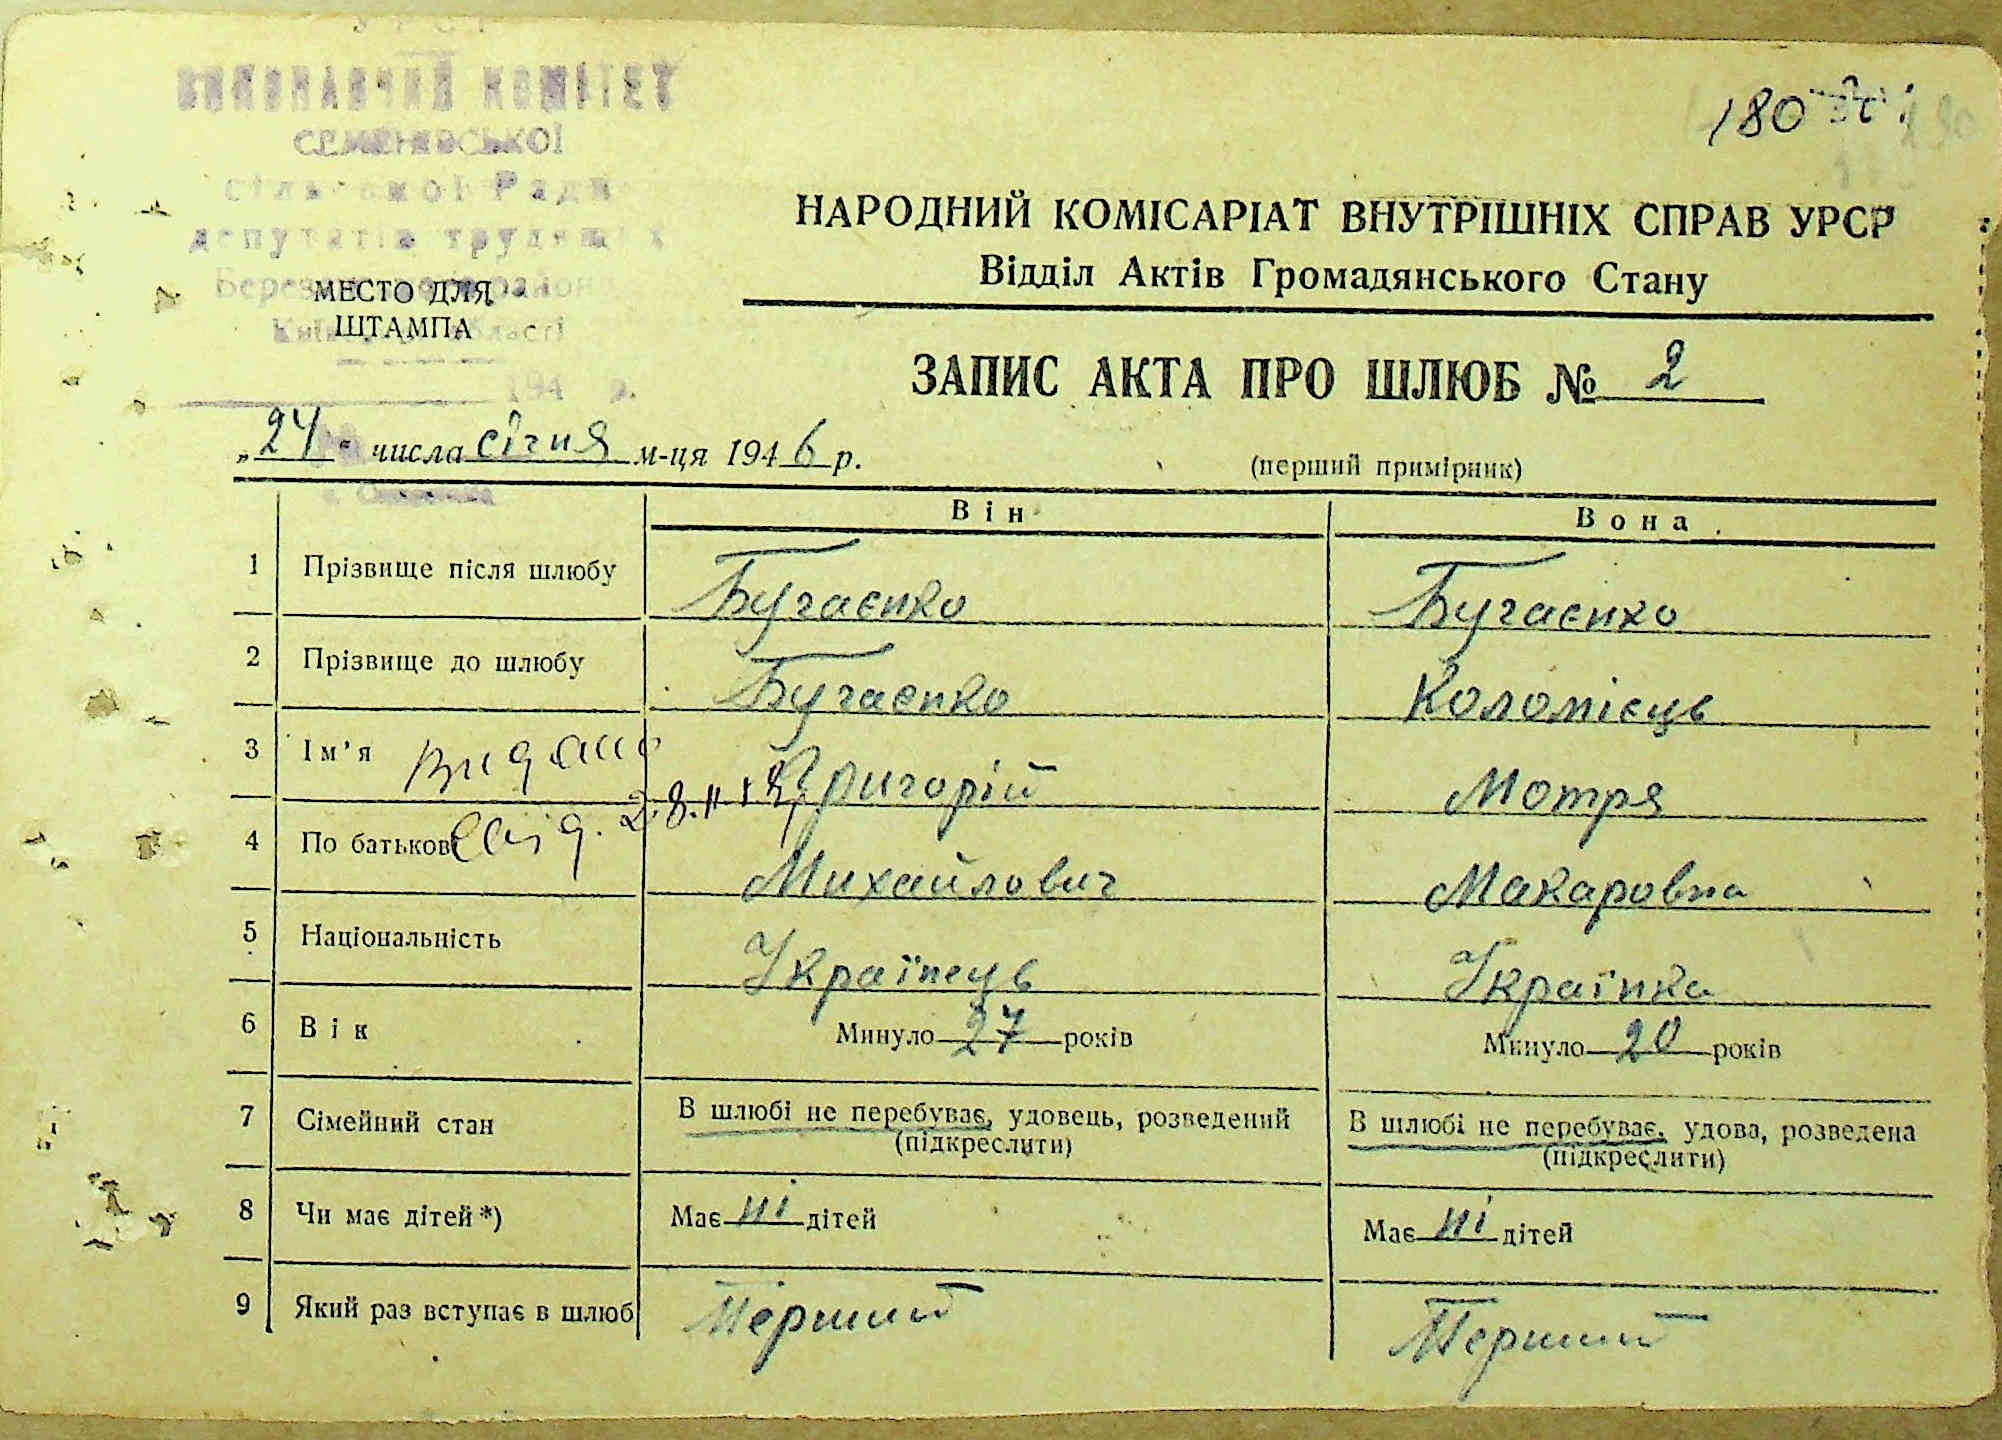 УРСР
ВИКОНАВЧИЙ КОМІТЕТ
СЕМЕНІВСЬКОЇ
сільської Ради
депутатів трудящих
району
Київської області
194 р.
180
МЕСТО ДЛЯ
ШТАМПА
НАРОДНИЙ КОМІСАРІАТ ВНУТРІШНІХ СПРАВ УРСР
Відділ Актів Громадянського Стану
ЗАПИС АКТА ПРО ШЛЮБ № 2
„24“ числа січня м-ця 1946 р.
(перший примірник)
Він Вона
1 Прізвище після шлюбу Бугаєнко Бугаєнко
2 Прізвище до шлюбу Бугаєнко Коломієць
3 Ім'я Григорій Мотря
4 По батькові Михайлович Макаровна
5 Національність Українець Українка
6 Вік Минуло 27 років Минуло 20 років
7 Сімейний стан В шлюбі не перебуває, удовець, розведений В шлюбі не перебуває, удова, розведена
(підкреслити) (підкреслити)
8 Чи має дітей*) Має ні дітей Має ні дітей
9 Який раз вступає в шлюб Перший Перший